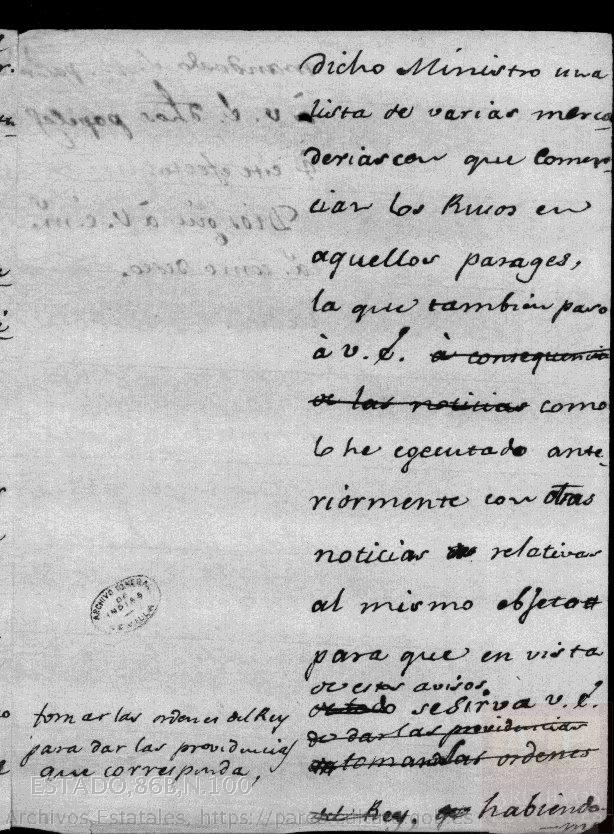 dicho Ministro una
lista de varias merca
derias con que Comer-
cian los Rusos en
aquellos parages,
la que tambien paso
à V.E. à consequencia
de las noticias como
lo he egecutado ante-
riormente con otras
noticias relativas
al mismo objeto
para que en vista
de estos avisos
de todo se sirva V.E.
de dar las providencias
tomar las ordenes
del Rey. habiendo
tomar las ordenes del Rey
para dar las providencias
que corresponda,
ARCHIVO GENERAL
DE
INDIAS
SEVILLA
ESTADO,86B,N.100
Archivos Estatales, https://pares